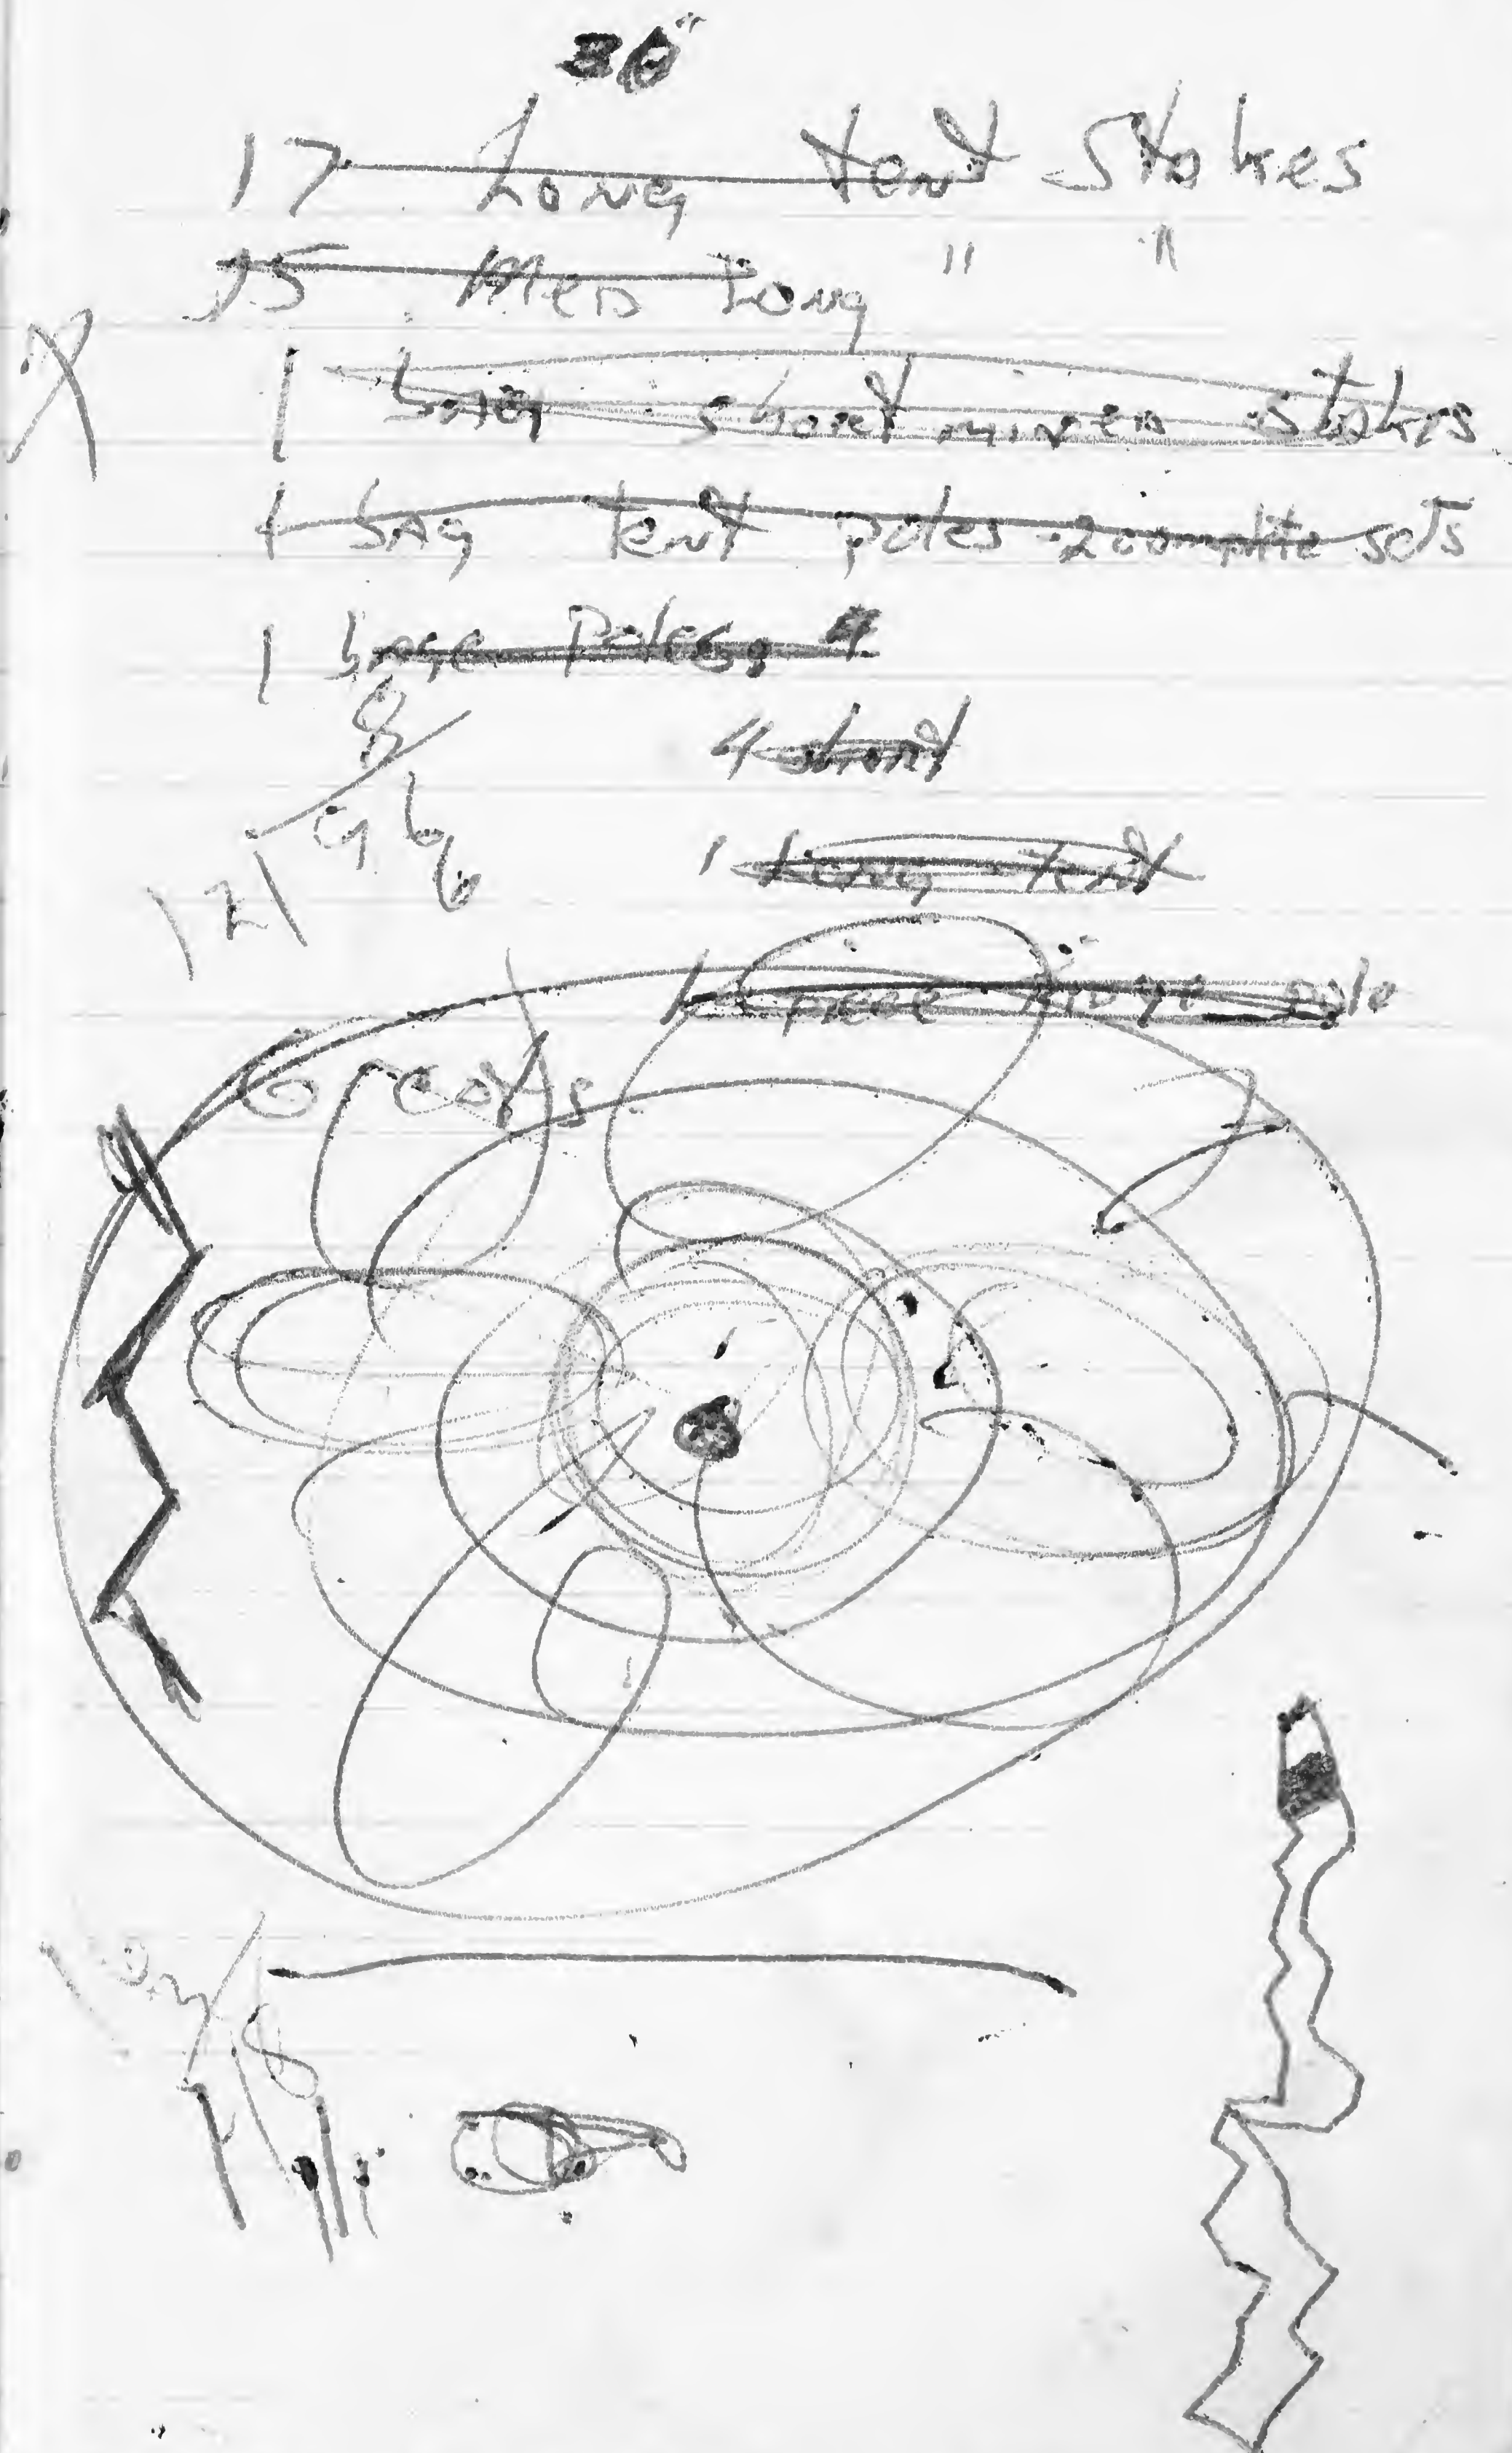 30"
17 Long tent Stakes
15 Med Long " "
1 bag short mixed stakes
1 bag tent poles 2 complite sets
1 bage Poles 4
4 short
1 Long tent
1 piece ridge pole
8
12 96
6 cots